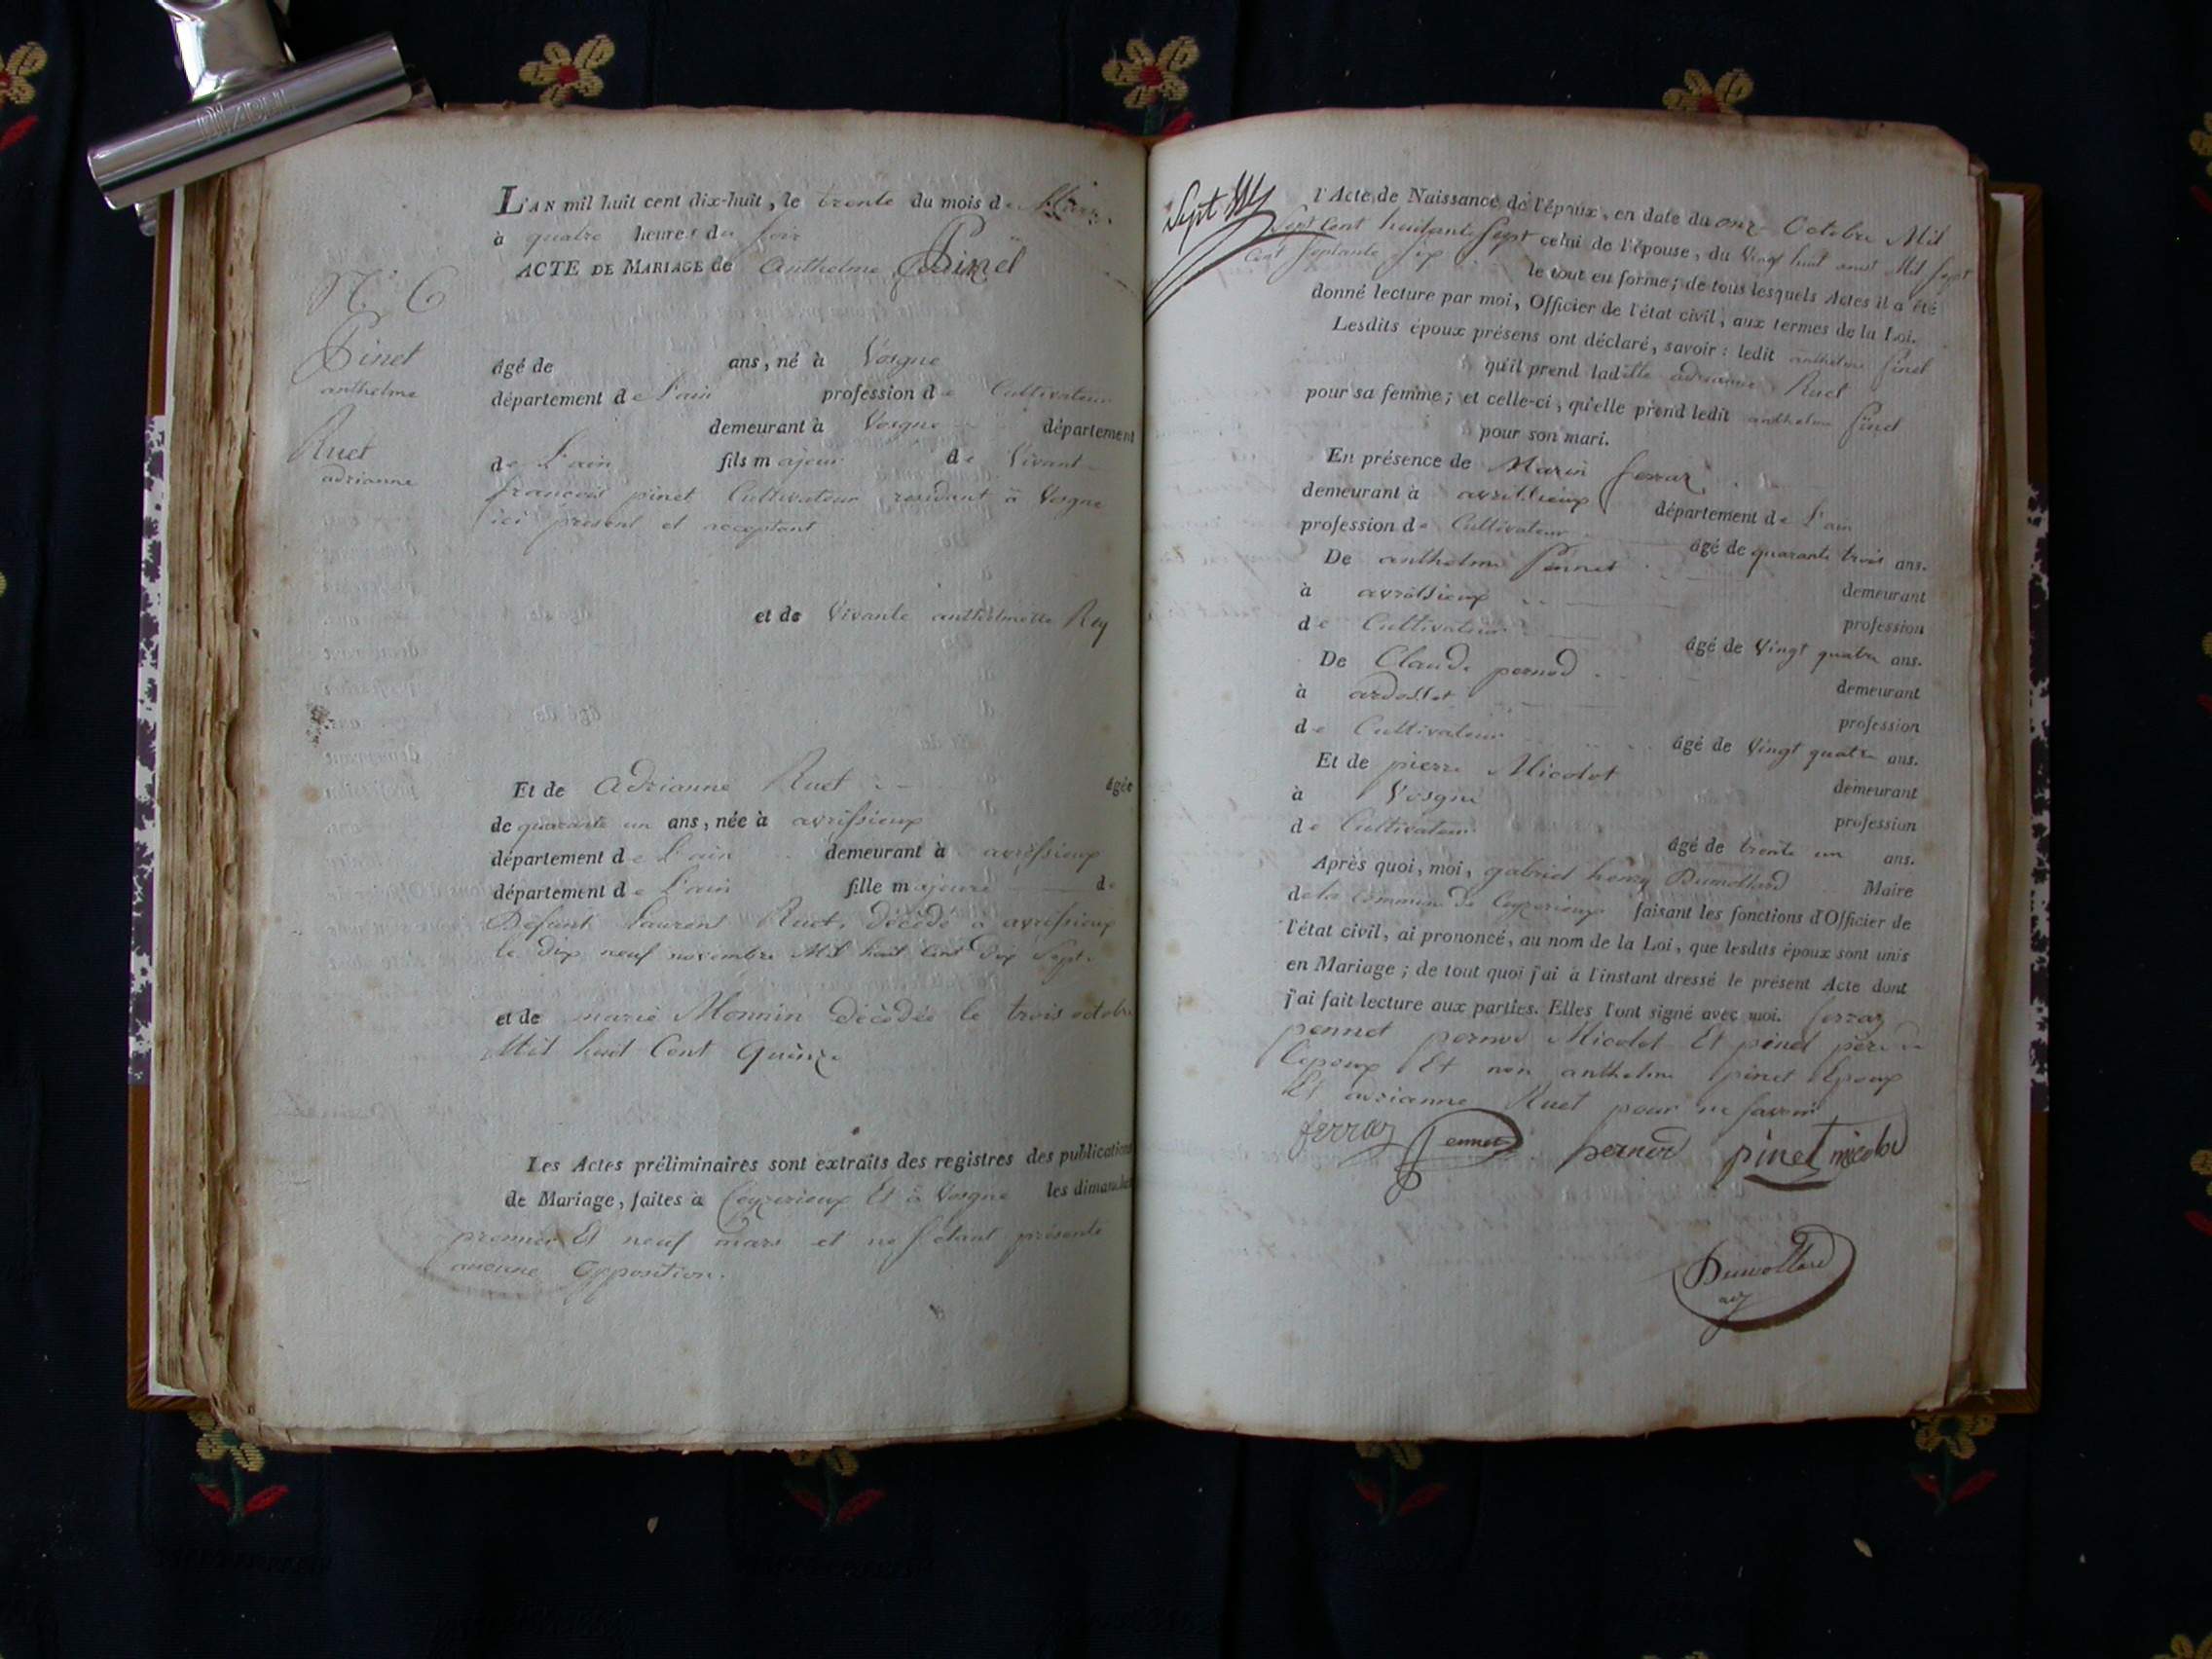 DIZBEL
L'AN mil huit cent dix-huit, le trente du mois de Mars
à quatre heures du soir
ACTE DE MARIAGE de Anthelme Pinet
N.° 6
Pinet
anthelme
Ruet
adrianne
âgé de ans, né à Vosgne
département de L'ain profession de Cultivateur
demeurant à Vosgne département
de L'ain fils majeur de Vivant
francois pinet Cultivateur residant à Vosgne
ici present et acceptant
et de Vivante anthelmette Rey
Et de Adrianne Ruet âgée
de quarante un ans, née à avressieux
département de L'ain demeurant à avressieux
département de L'ain fille majeure de
Defunt Laurent Ruet, décédé à avressieux
le dix neuf novembre Mil huit Cent dix Sept
et de marie Monnin décédée le trois octobre
Mil huit Cent Quinze
Les Actes préliminaires sont extraits des registres des publications
de Mariage, faites à Ceyzerieux Et à Vosgne les dimanches
premier Et neuf mars et ne s'étant présenté
aucune Opposition.
Sept
l'Acte de Naissance de l'époux, en date du onze Octobre Mil
Sept Cent huitante Sept celui de l'épouse, du Vingt huit aout Mil Sept
Cent Septante Six le tout en forme; de tous lesquels Actes il a été
donné lecture par moi, Officier de l'état civil, aux termes de la Loi.
Lesdits époux présens ont déclaré, savoir: ledit anthelme pinet
qu'il prend ladille adrianne Ruet
pour sa femme; et celle-ci, qu'elle prend ledit anthelme pinet
pour son mari.
En présence de Marin ferraz
demeurant à avressieux département de L'ain
profession de Cultivateur âgé de quarante trois ans.
De anthelme Pennet demeurant
à avressieux profession
de Cultivateur âgé de Vingt quatre ans.
De Claude pernod demeurant
à ardosset profession
de Cultivateur âgé de Vingt quatre ans.
Et de pierre Micolot demeurant
à Vosgne profession
de Cultivateur âgé de trente un ans.
Après quoi, moi, gabriel henry Dumollard Maire
de la commune de Ceyzerieux faisant les fonctions d'Officier de
l'état civil, ai prononcé, au nom de la Loi, que lesdits époux sont unis
en Mariage; de tout quoi j'ai à l'instant dressé le présent Acte dont
j'ai fait lecture aux parties. Elles l'ont signé avec moi. ferraz
pennet pernod Micolot Et pinet père de
l'epoux Et non anthelme pinet Epoux
Et adrianne Ruet pour ne savoir
ferraz Pennet pernod pinet micolod
Dumollard